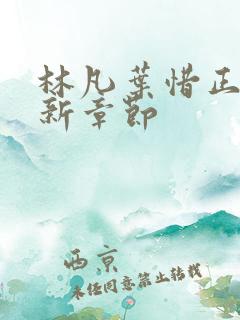 林凡葉惜正
新章節
西京
未经同意禁止转载